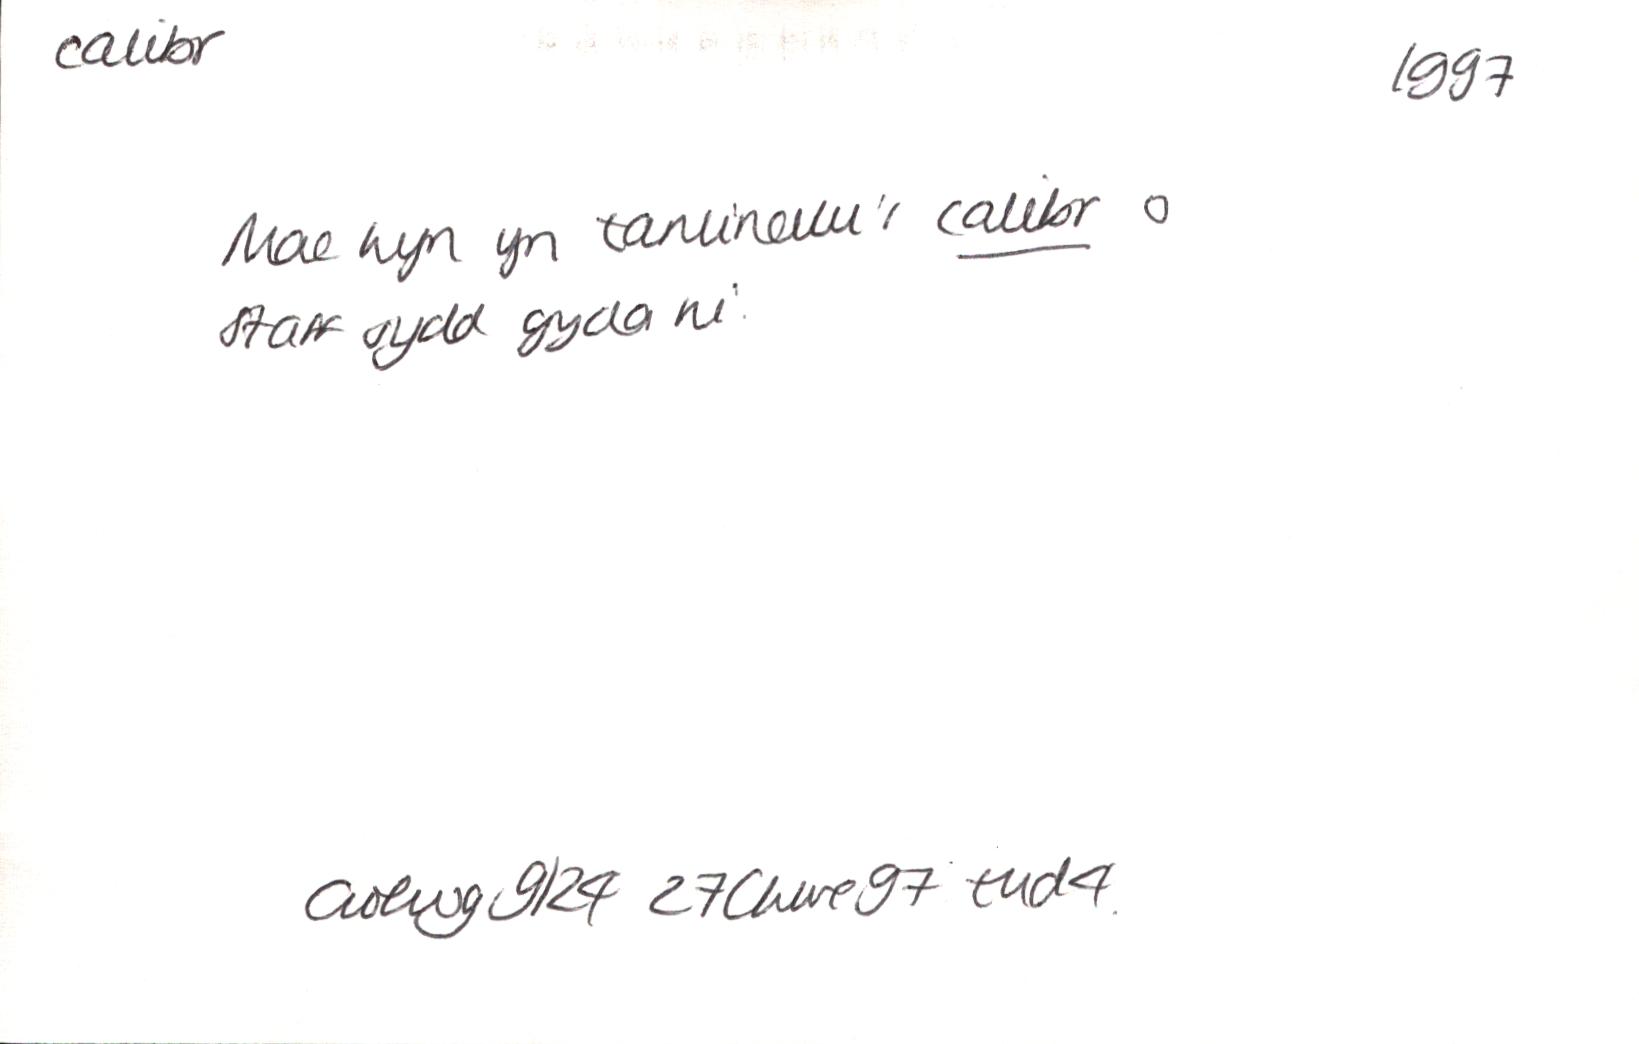 calibr
1997
Mae hyn yn tanlinellu'r calibr o
staff sydd gyda ni.
Golwg 9/24 27 Chwe 97 tud 4.